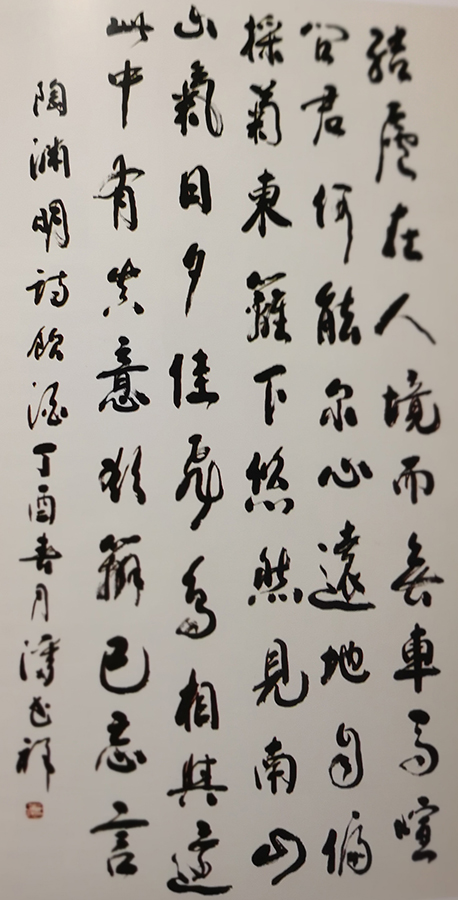 結廬在人境而無車馬喧
問君何能尔心遠地自偏
採菊東籬下悠然見南山
山氣日夕佳飛鳥相與還
此中有真意欲辯已忘言
陶淵明詩飲酒丁酉春月